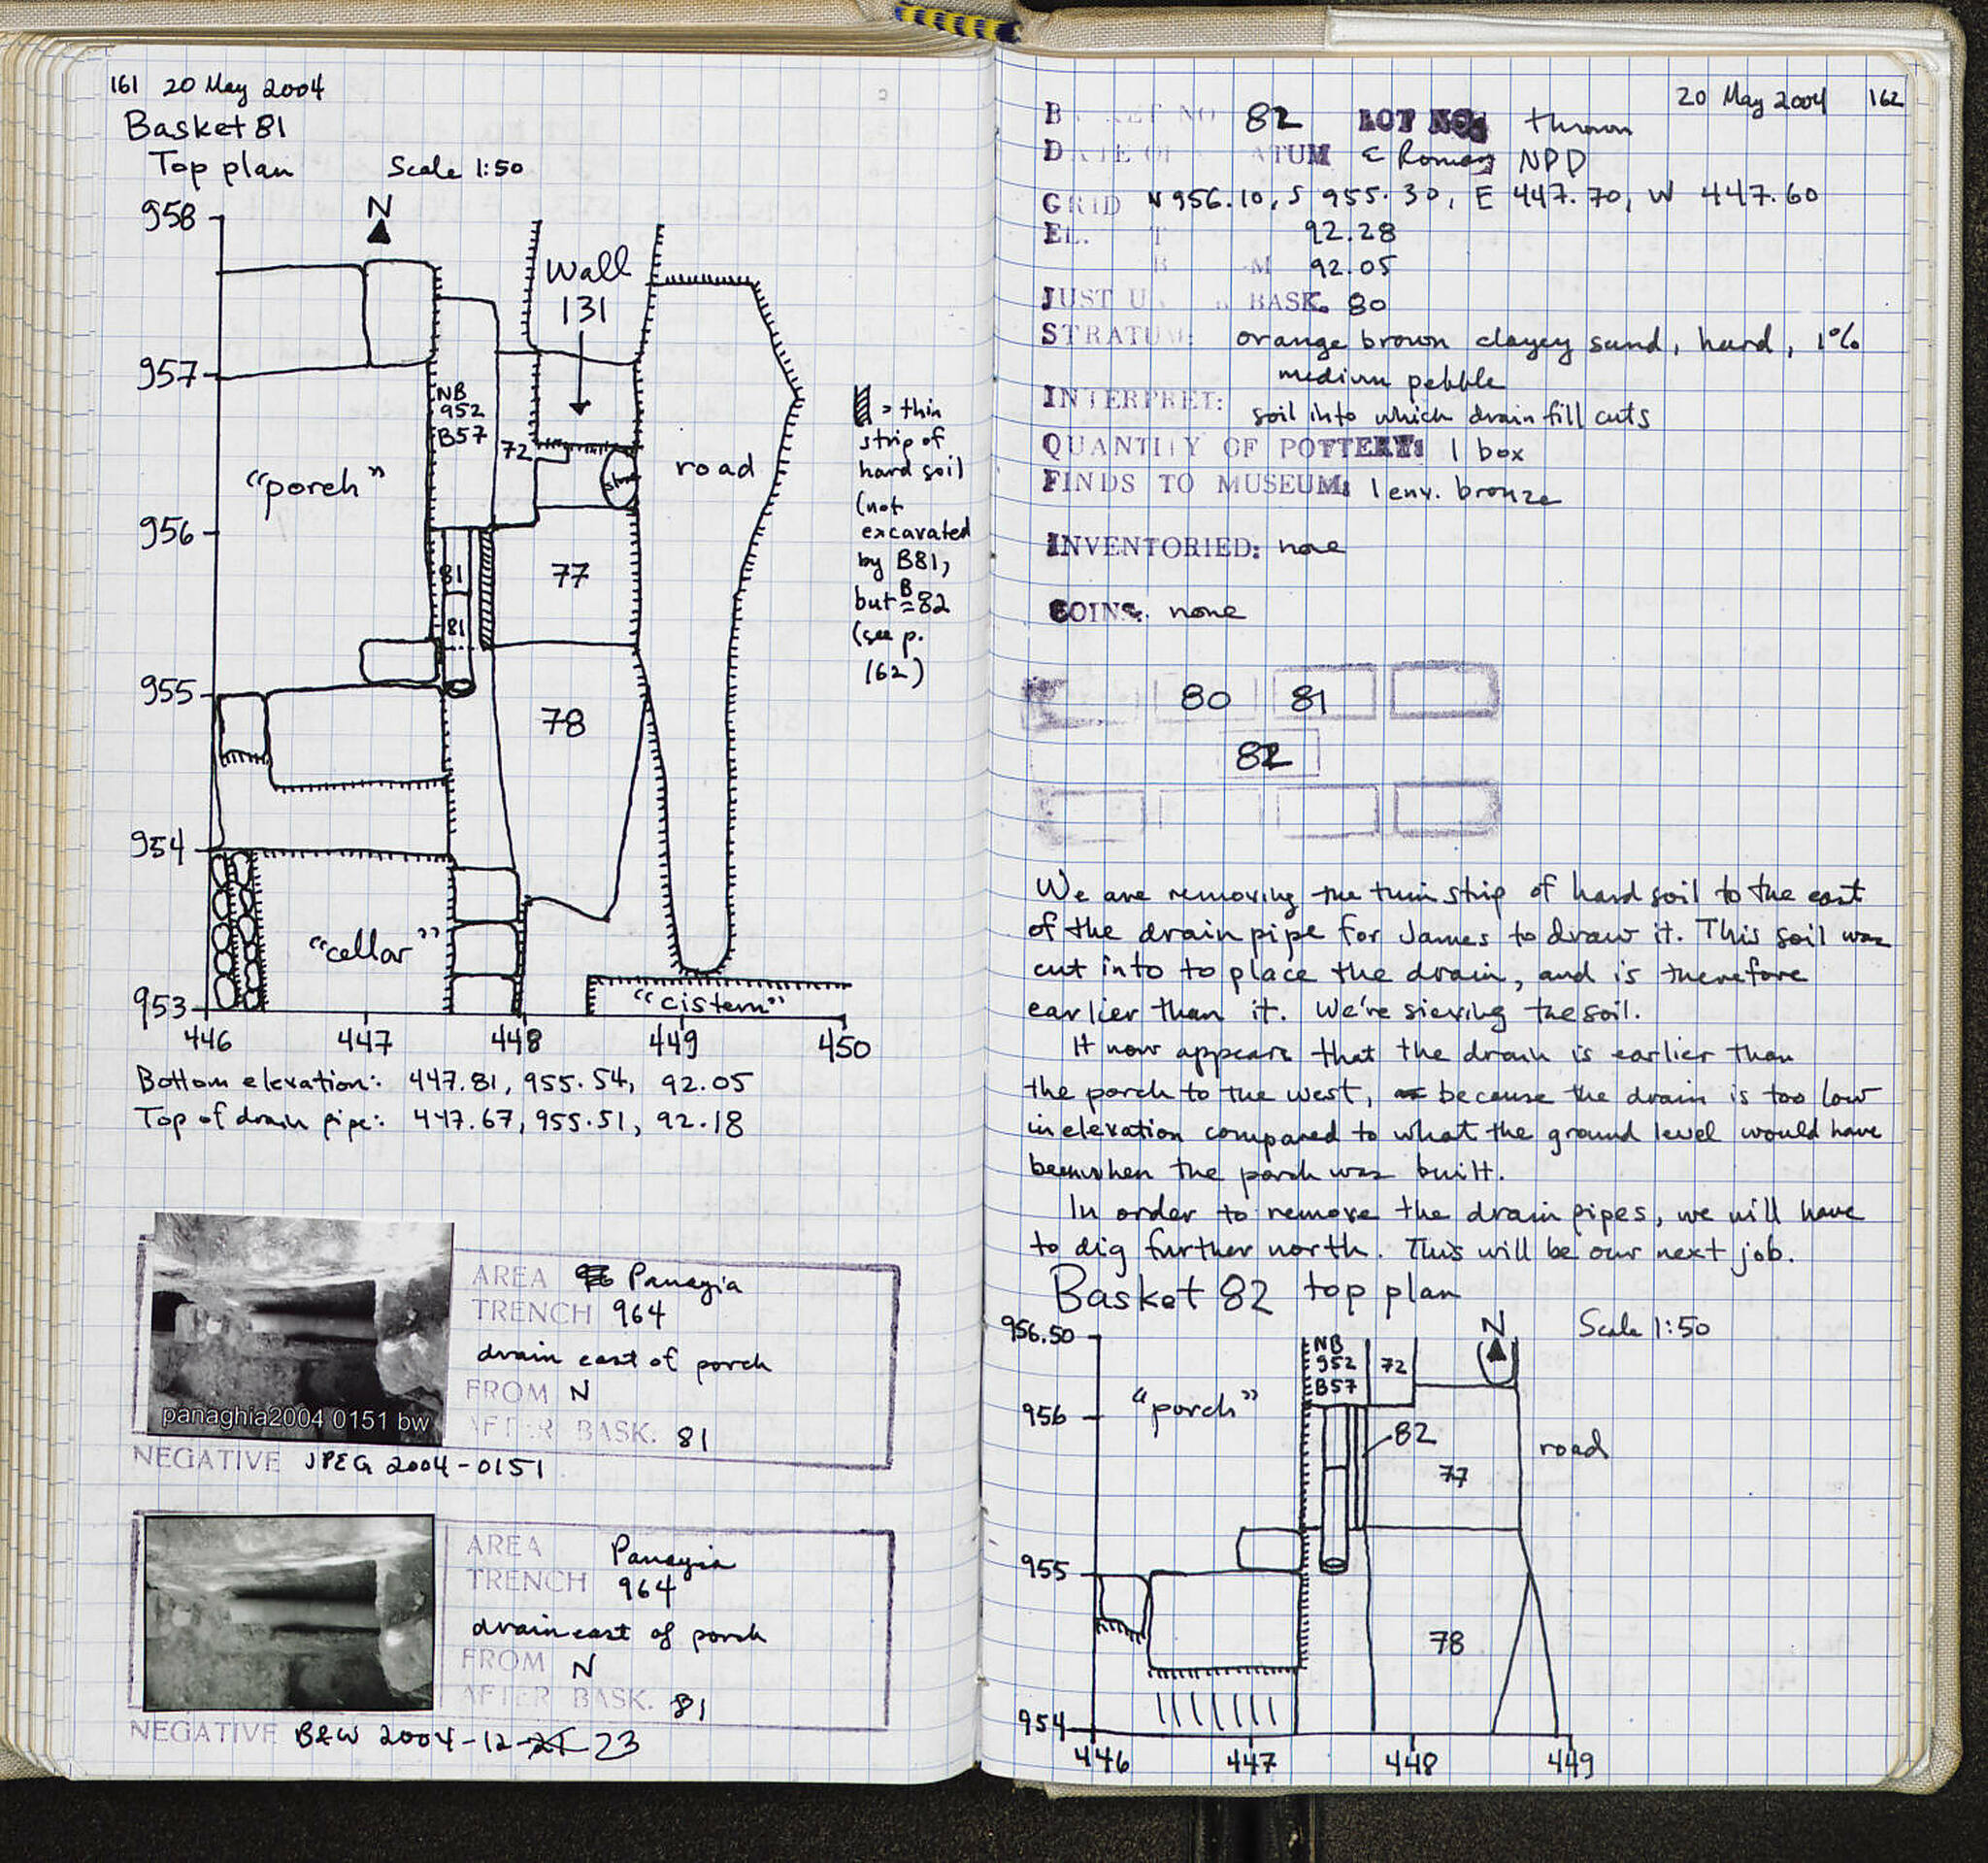 161 20 May 2004
Basket 81
Top plan Scale 1:50
N
958
957
956
955
954
953
446 447 448 449 450
Wall
131
NB
952
B57
72
"porch"
stone
road
81
77
81
78
"cellar"
"cistern"
= thin
strip of
hard soil
(not
excavated
by B81,
but B=82
(see p.
162)
Bottom elevation: 447.81, 955.54, 92.05
Top of drain pipe: 447.67, 955.51, 92.18
panaghia2004 0151 bw
AREA Panayia
TRENCH 964
drain east of porch
FROM N
AFTER BASK. 81
NEGATIVE JPEG 2004-0151
AREA Panayia
TRENCH 964
drain east of porch
FROM N
AFTER BASK. 81
NEGATIVE B&W 2004-12-23
20 May 2004 162
BASKET NO 82 LOT NO: thrown
DATE OF STATUM E Roman NPD
GRID N 956.10, S 955.30, E 447.70, W 447.60
EL. T 92.28
B M 92.05
JUST U BASK. 80
STRATUM: orange brown clayey sand, hard, 1%
medium pebble
INTERPRET: soil into which drain fill cuts
QUANTITY OF POTTERY: 1 box
FINDS TO MUSEUM: 1 env. bronze
INVENTORIED: none
COINS: none
80 81
82
We are removing the thin strip of hard soil to the east
of the drain pipe for James to draw it. This soil was
cut into to place the drain, and is therefore
earlier than it. We're sieving the soil.
It now appears that the drain is earlier than
the porch to the west, because the drain is too low
in elevation compared to what the ground level would have
been when the porch was built.
In order to remove the drain pipes, we will have
to dig further north. This will be our next job.
Basket 82 top plan
Scale 1:50
N
956.50
956
955
954
446 447 448 449
NB
952
B57
72
"porch"
82
77
road
78